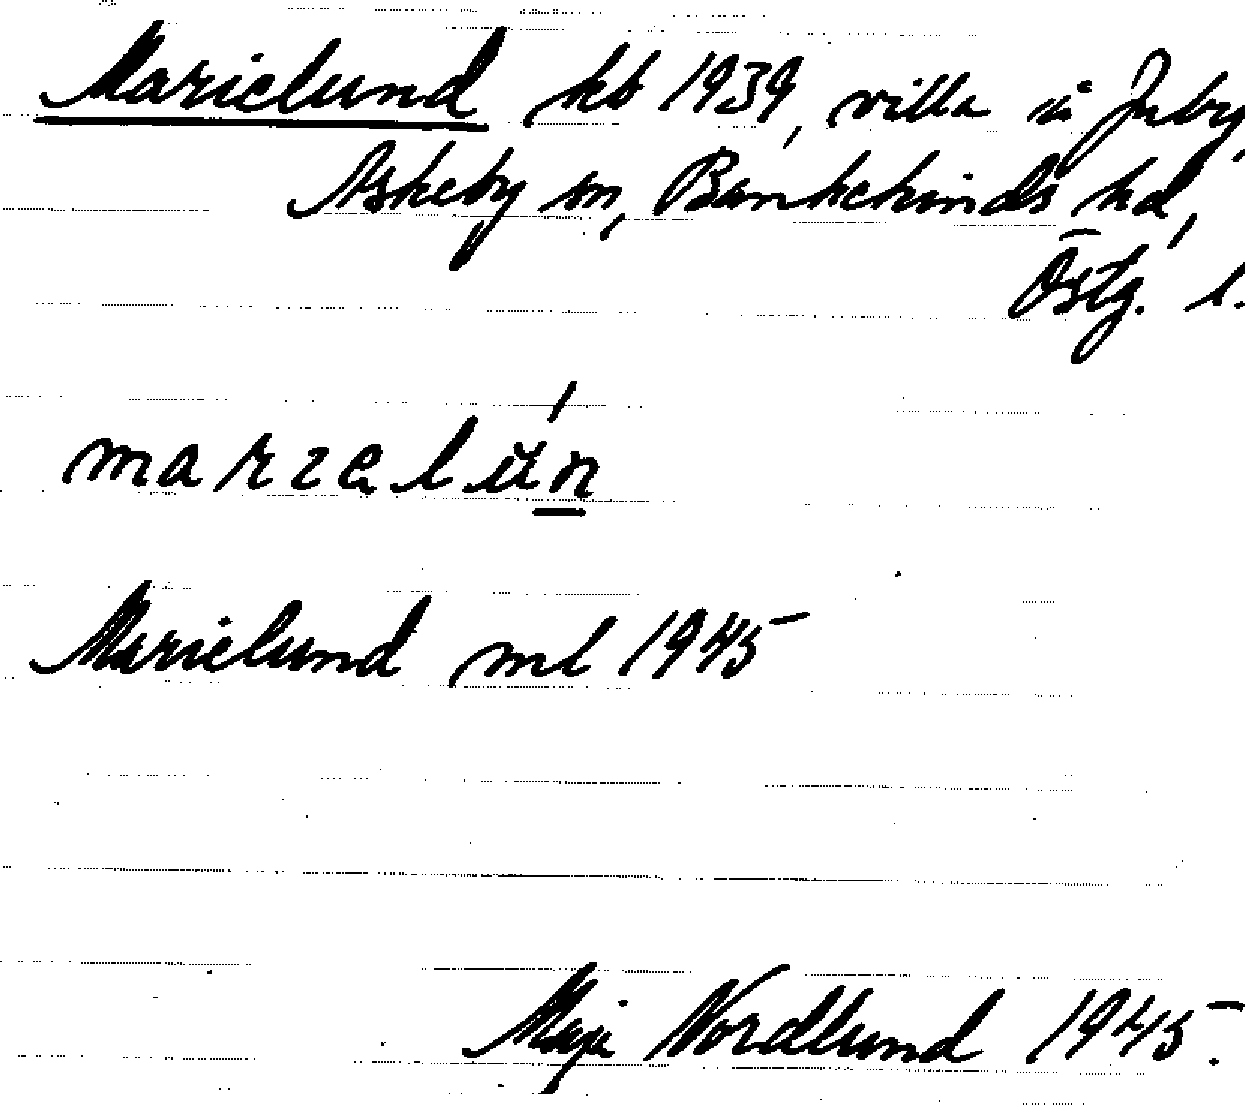 Marielund kb 1939, villa å Juby,
Askeby sn, Bankekinds hd,
Östg. l.
marzalún
Marielund ml 1945
Maja Nordlund 1945.